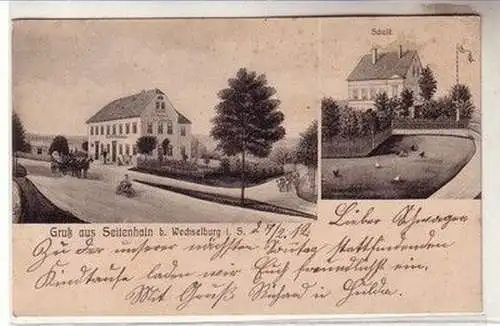 Schule
Gruß aus Seitenhain b. Wechselburg i. S.
27/2 12
Lieber Schwager
Zu der unserer nächsten Sonntag stattfindenden
Kindtaufe laden wir Euch freundlichst ein.
Mit Gruß Richard u Hulda.